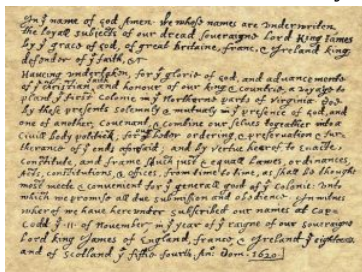 In ẙ name of god Amen. we whose names are underwriten,
the loyall subjects of our dread soveraigne lord King James
by ẙ grace of god, of great britaine, franc, & Ireland king,
defender of ẙ faith, &c
Haveing undertaken, for ẙ glorie of god, and advancemente
of ẙ christian faith and honour of our king & countrie, a voyage to
plant ẙ first colonie in ẙ Northerne parts of virginia doe
by these presents solemnly & mutualy in ẙ presence of god, and
one of another, covenant, & combine our selves togeather into a
Civill body politick, for ẙ better ordering, & preservation & fur=
therance of ẙ ends aforesaid; and by vertue hearof to enacte,
constitute, and frame such just & equall Lawes, ordinances,
Acts, constitutions, & offices, from time to time, as shall be thought
most meete & convenient for ẙ generall good of ẙ Colonie: unto
which we promise all due submission and obedience. In witnes
wherof we have hereunder subscribed our names at Cape
Codd ẙ .11. of November, in ẙ year of ẙ raigne of our soveraigne
Lord king James of England, franc, & Ireland ẙ eighteenth
and of Scotland ẙ fiftie fourth. An: Dom. 1620.